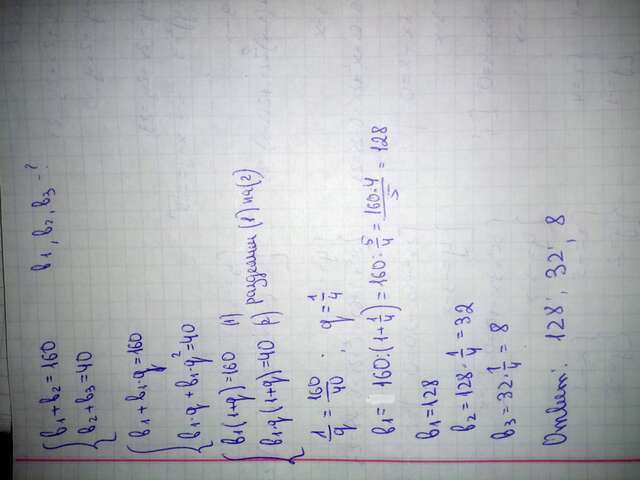 b1+b2=160 b1, b2, b3 - ?
b2+b3=40
b1+b1·q=160
b1·q+b1·q²=40
b1(1+q)=160 (1)
b1·q(1+q)=40 (2) разделим (1) на (2)
1/q = 160/40 ; q=1/4
b1= 160:(1+1/4)=160:5/4=160·4/5=128
b1=128
b2=128·1/4=32
b3=32·1/4=8
Ответ: 128; 32; 8